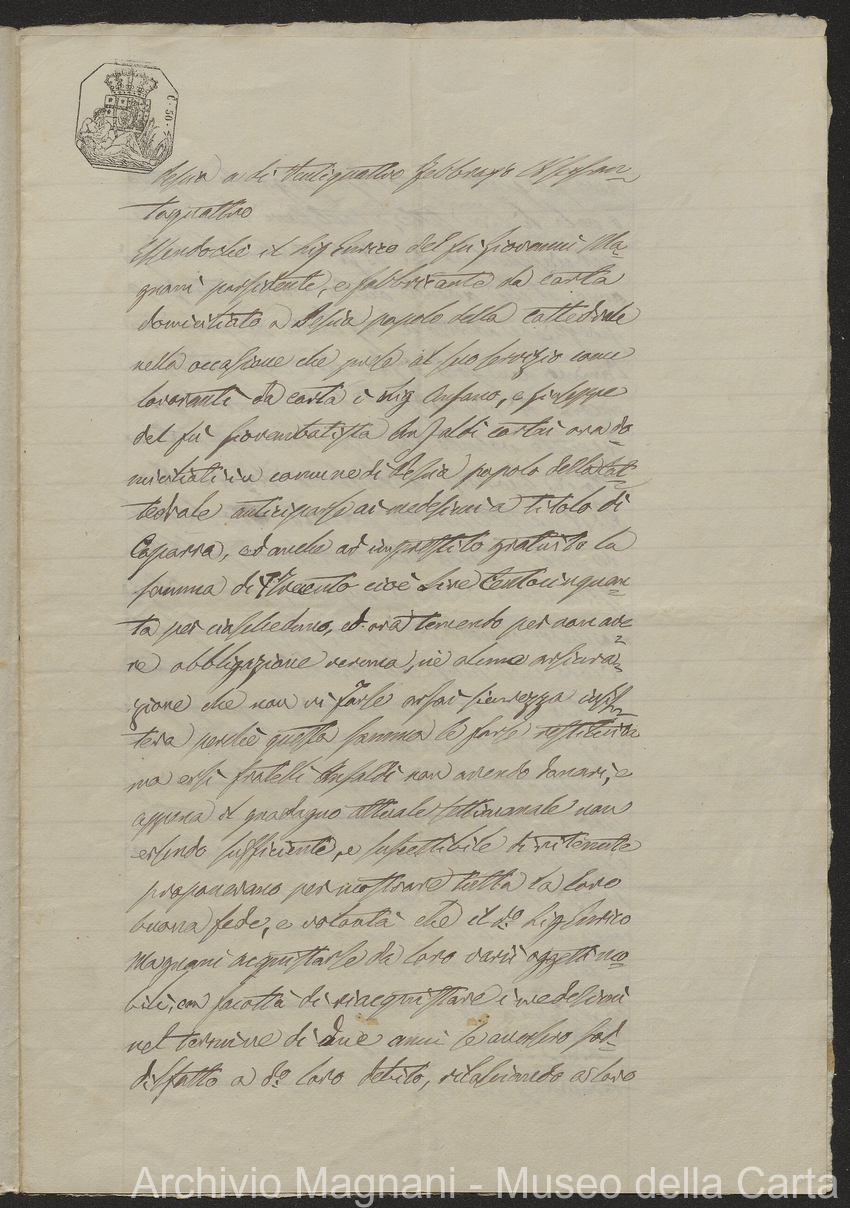 C. 50.
Pescia a di Ventiquattro Febbrajo
taquattro
Essendochè il Sig Enrico del fù Giovanni Ma=
gnani possidente, e fabbricante da carta
domiciliato a Pescia popolo della Cattedrale
nella occasione che prese al suo servizio come
lavoranti da carta i Sig Ansano, e Giuseppe
del fù Giovanbatista Ansaldi cartai ora do=
miciliati in comune di Pescia popolo della Cat=
tedrale anticipasse ai medesimi a titolo di
Caparra, ed anche ad imprestito gratuito la
somma di Trecento cioè Lire Centocinquan=
ta per ciascheduno, ed ora temendo per non ave=
re obbligazione veruna, nè alcuna assicura=
zione che non vi fosse assai sicurezza
perchè questa somma le fosse restituita
ma essi fratelli Ansaldi non avendo danari, e
appena il guadagno attuale settimanale non
essendo sufficiente, e suscettibile di ritenute
proponevano per mostrare tutta la loro
buona fede, e volontà che il do. Sig Enrico
Magnani acquistasse da loro varii oggetti mo=
bili, con facoltà di riacquistare i medesimi
nel termine di due anni se avessero sod=
disfatto a do. loro debito, rilasciando a loro
Archivio Magnani - Museo della Carta